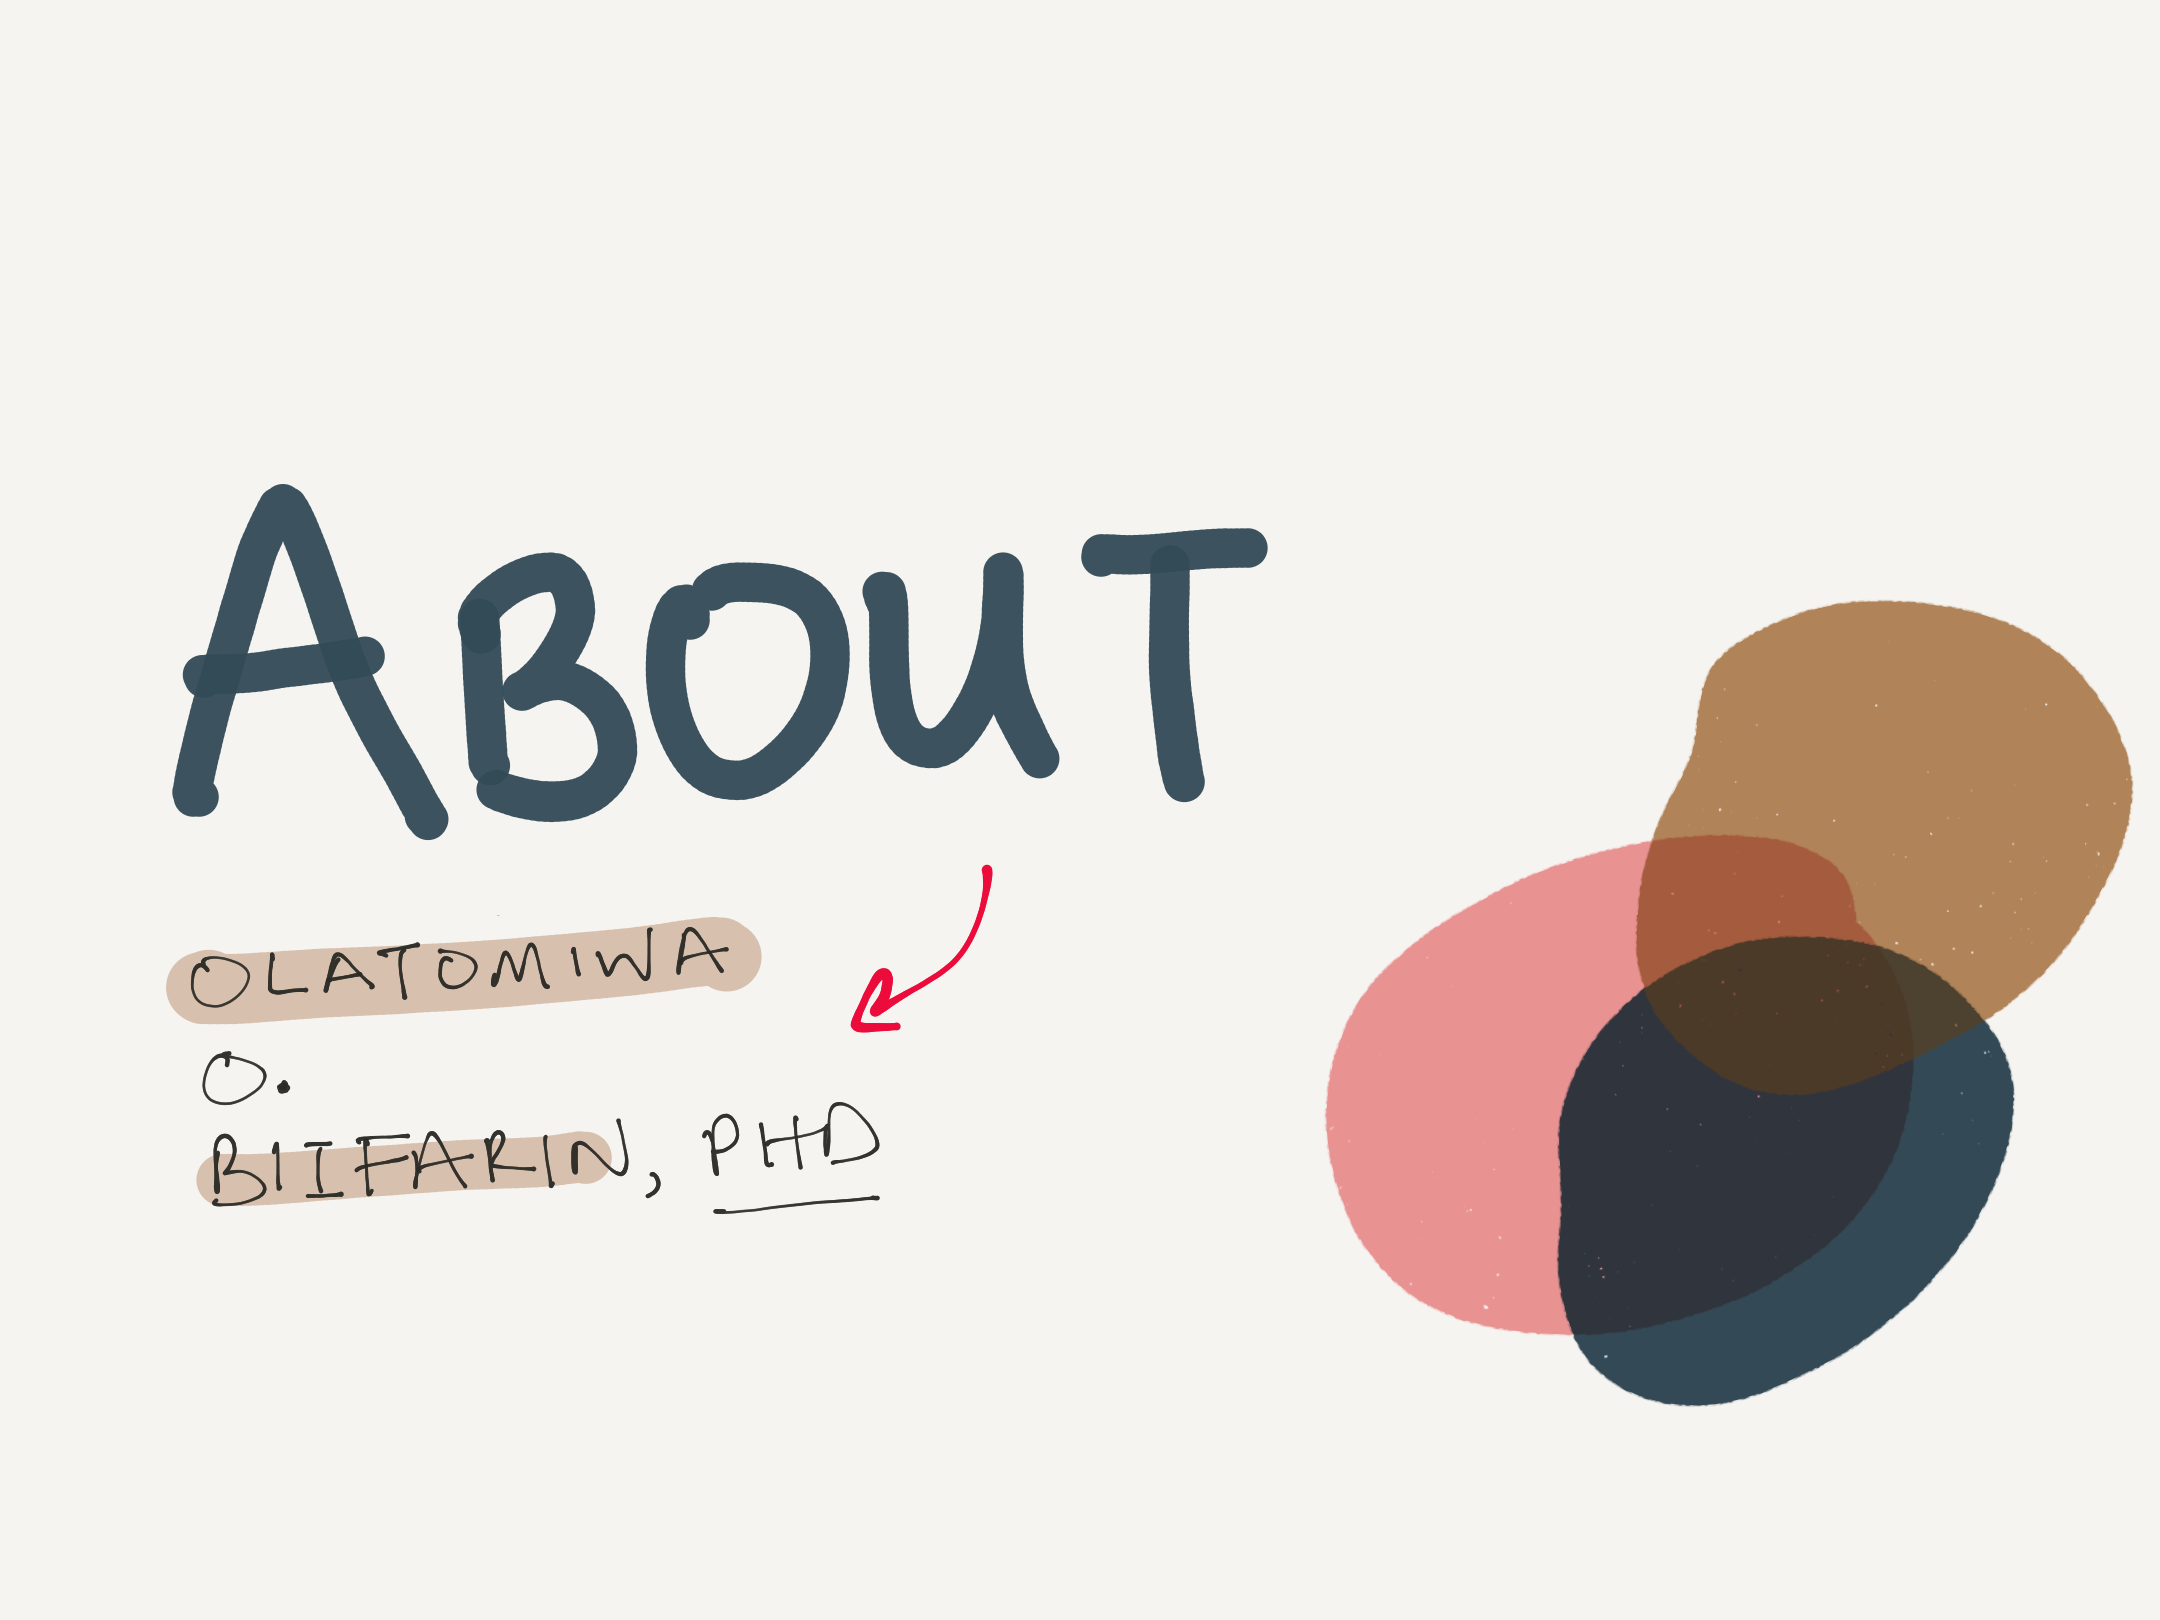 ABOUT
OLATOMIWA
O.
BIIFARIN, PHD